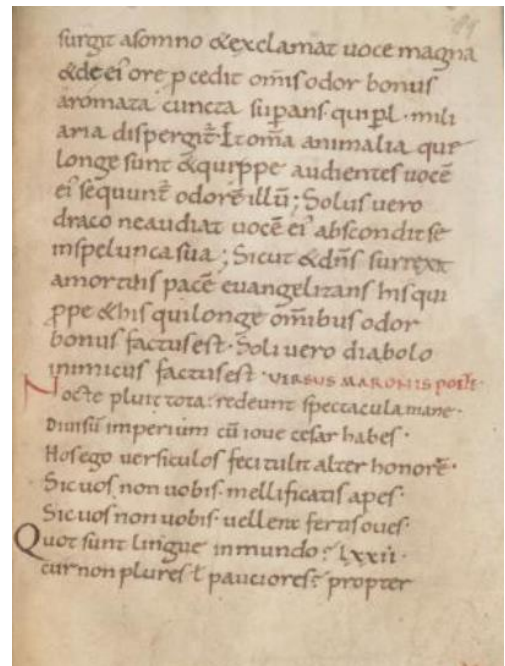 surgit asomno &exclamat uoce magna
&de ei᾽ ore pcedit om̄is odor bonus
aromata cuncta sup̱ans· qui p̱ l· mili
aria dispergit᷑· Ł om̄a animalia que
longe sunt &quippe audientes uocē
ei᾽ sequunt᷑ odorē illū; Solus uero
draco neaudiat uocē ei᾽ abscondit se
inspelunca sua; Sicut &dn̄s surrexit
amortuis pacē euangelizans his qui
ꝓpe &his qui longe om̄ibus odor
bonus factus est· Soli uero diabolo
inimicus factus est· VERSUS MARONIS
Nocte pluit tota: redeunt spectacula mane·
Diuisū imperium cū ioue cesar habes·
Hos ego uersiculos feci tulit alter honorē·
Sic uos non uobis· mellificatis apes·
Sic uos non uobis· uellera fertis oues·
Quot sunt lingue inmundo? lxxii·
cur non plures ł pauciores? propter